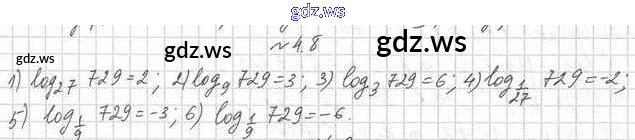 gdz.ws
gdz.ws gdz.ws gdz.ws
№ 4.8
1) log₂₇ 729 = 2; 2) log₉ 729 = 3; 3) log₃ 729 = 6; 4) log_{1/27} 729 = -2;
5) log_{1/9} 729 = -3; 6) log_{1/9} 729 = -6.